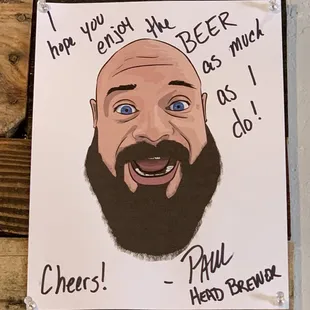 I
hope you
enjoy the
BEER
as much
as I
do!
Cheers!
- PAUL
HEAD BREWER